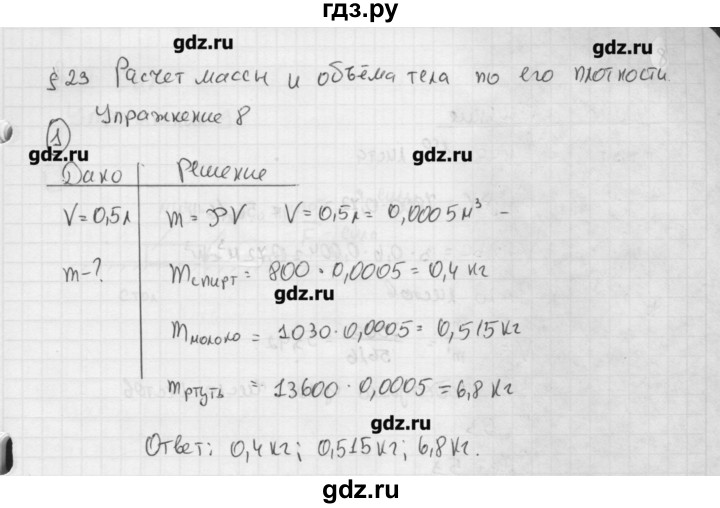 гдз.ру
gdz.ru
gdz.ru
§ 23 Расчет массы и объёма тела по его плотности.
Упражнение 8
1
gdz.ru
Дано Решение
V=0,5л m = ρV V = 0,5л = 0,0005м³ -
m-? mспирт = 800 · 0,0005 = 0,4 кг
gdz.ru
mмолоко = 1030 · 0,0005 = 0,515кг
mртуть = 13600 · 0,0005 = 6,8 кг
gdz.ru
Ответ: 0,4кг; 0,515кг; 6,8кг.
gdz.ru